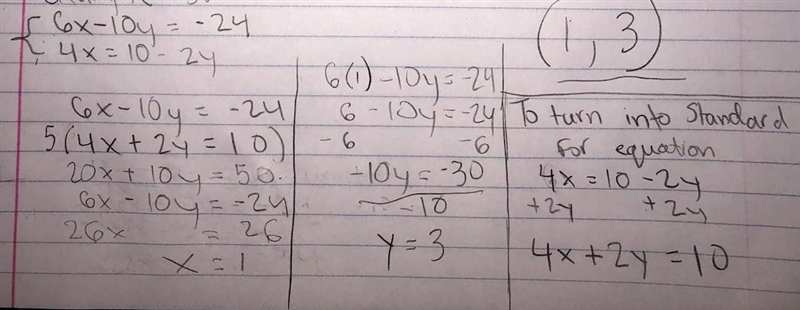 6x-10y = -24
4x = 10 - 2y
6x-10y = -24
5(4x + 2y = 10)
20x + 10y = 50.
6x - 10y = -24
26x = 26
x = 1
6(1) -10y = -24
6 -10y = -24
-6 -6
-10y = -30
-10
y = 3
(1, 3)
To turn into Standard
for equation
4x = 10 - 2y
+2y +2y
4x + 2y = 10